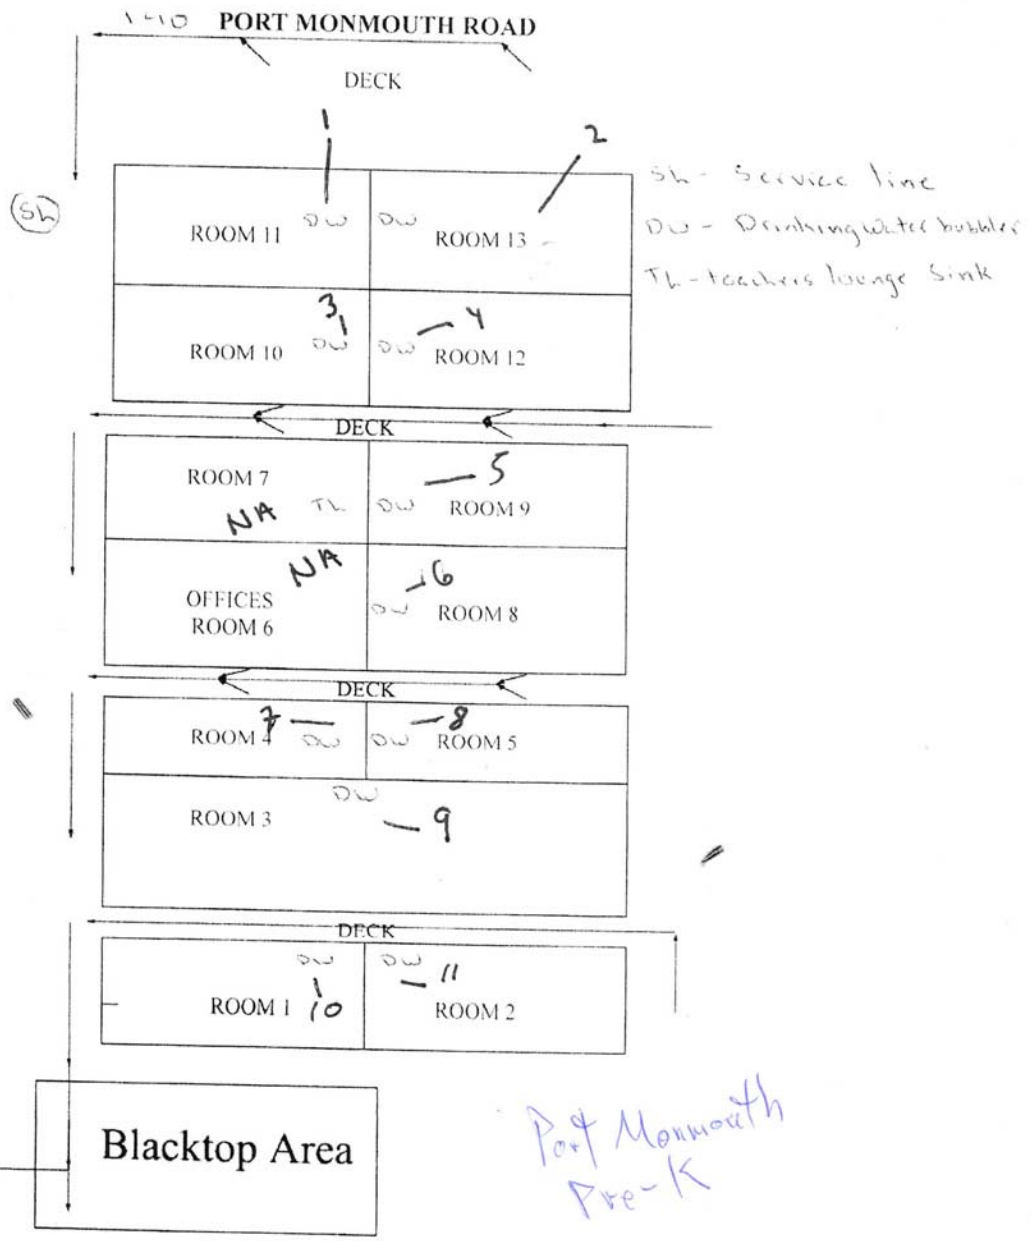 PORT MONMOUTH ROAD
DECK
1
2
SL - Service line
SL
DW DW
ROOM 11
ROOM 13
DW - Drinking Water bubbler
TL - teachers lounge Sink
3
4
DW DW
ROOM 10
ROOM 12
DECK
ROOM 7
5
NA TL DW ROOM 9
NA
6
OFFICES
ROOM 6
DW ROOM 8
DECK
7
8
ROOM 4 DW DW ROOM 5
DW
ROOM 3
9
DECK
DW DW
11
ROOM 1 10
ROOM 2
Blacktop Area
Port Monmouth
Pre-K